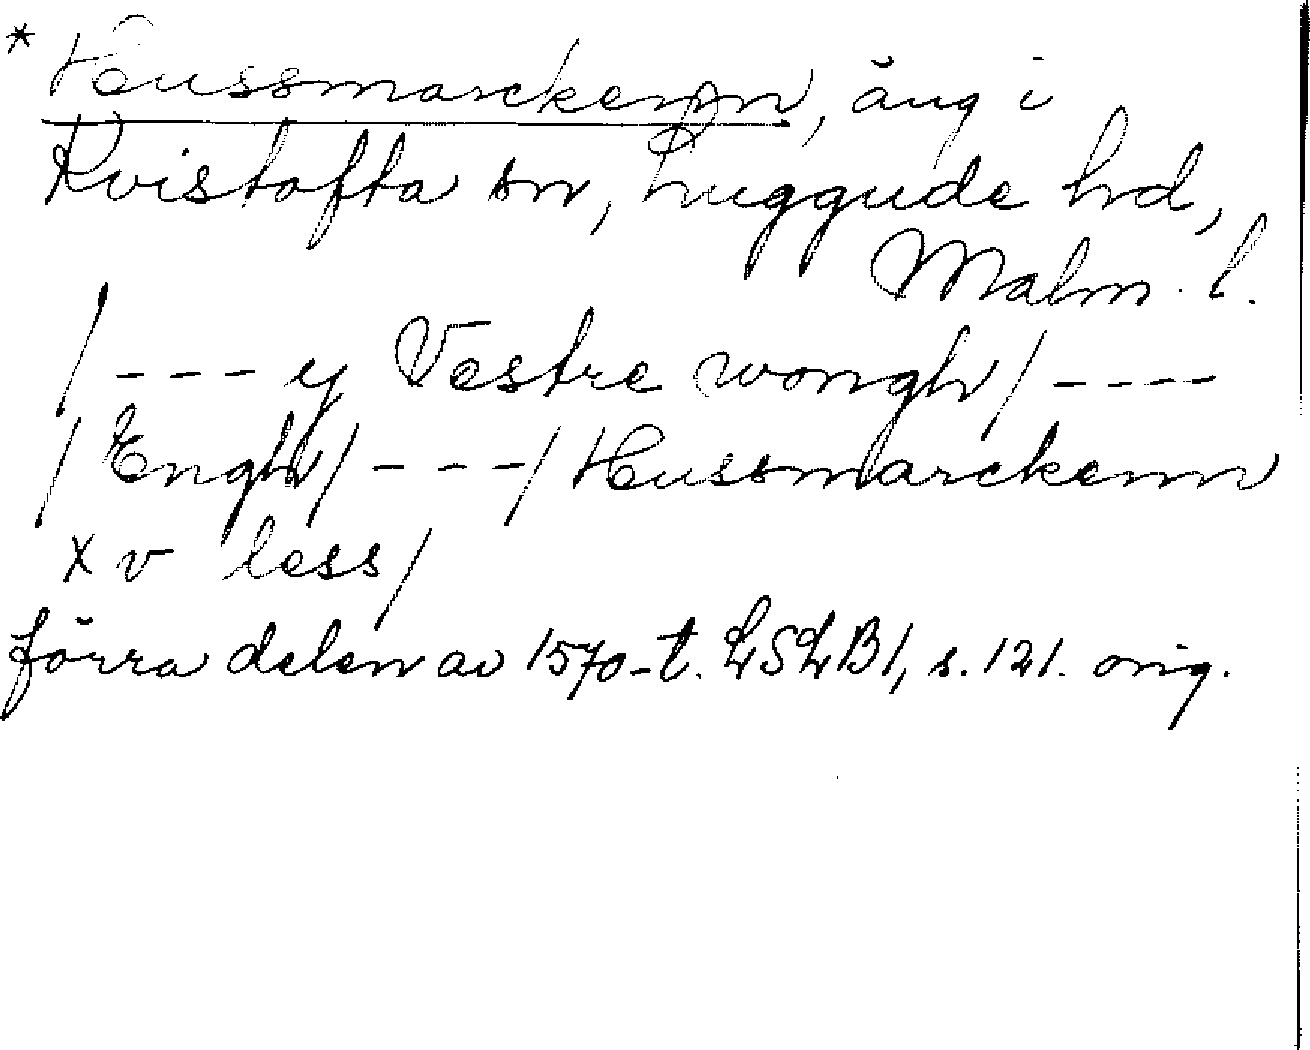 * Hussmarckenn, äng i
Kvistofta sn, Luggude hd,
Malm. l.
/ - - - y Vestre wongh / - - - -
/ Engh / - - - / Hussmarckenn
x v less /
förra delen av 1570-t. LSLB1, s. 121. orig.